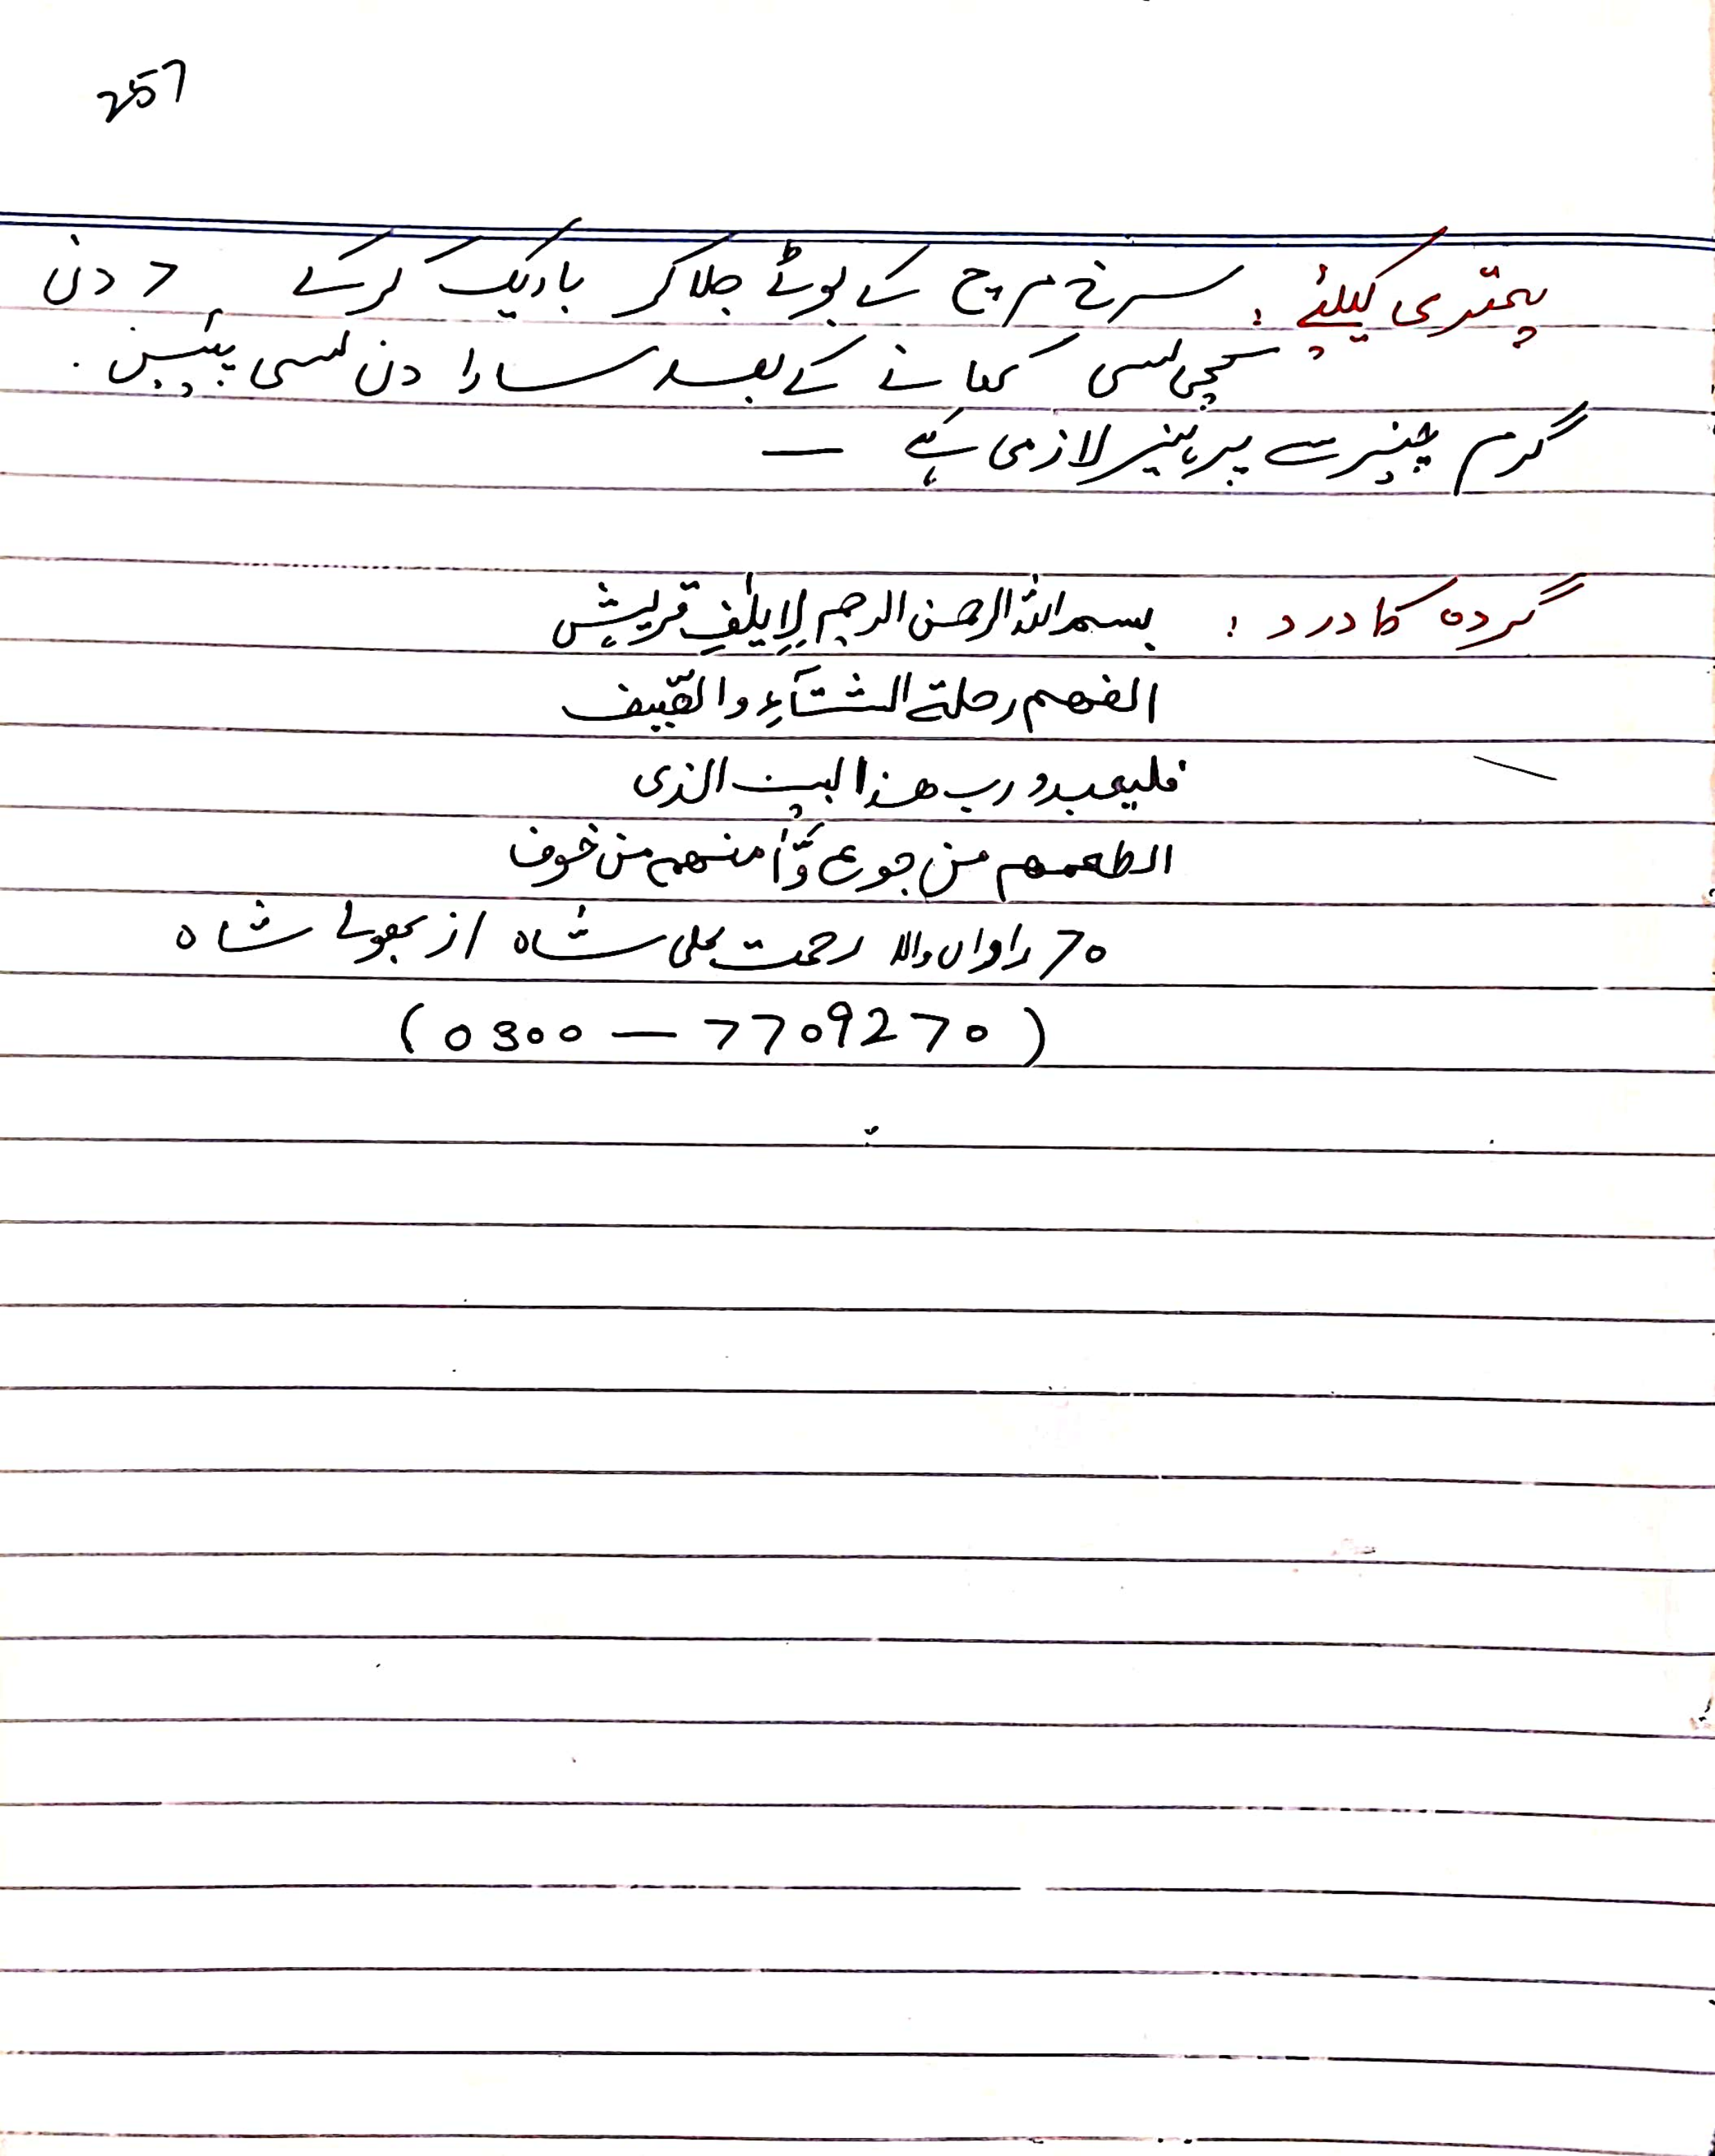 257
پتھری کیلئے : سرخ مرچ کے بوٹے جلا کر باریک کرکے 7 دن
کچی لسی کھانے کے بعد سارا دن لسی پئیں .
گرم چیز سے پرہیز لازمی ہے —
گردہ کا درد : بسم اللہ الرحمن الرحیم لِاِیلٰفِ قریش
الفھم رحلۃ الشتآءِ والصّیف
فلیعبدو رب ھذا البیت الذی
اطعمھم من جوع وَّاٰمنھم من خوف
70 راواں والا رحمت علی شاہ از بھولے شاہ
(0300 — 7709270)